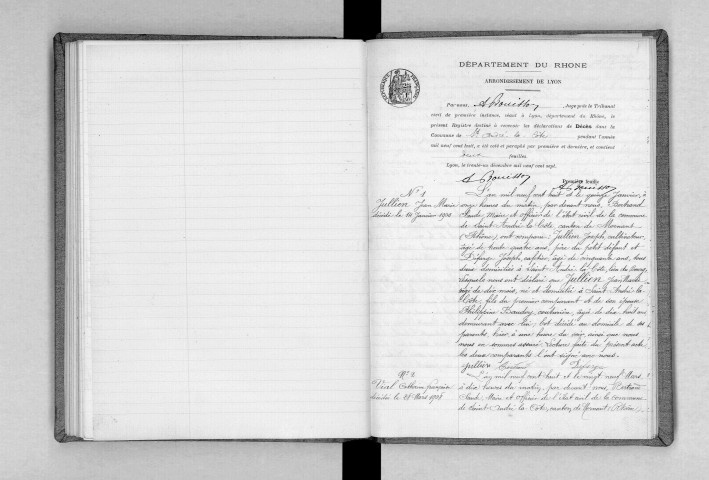 DÉPARTEMENT DU RHONE
ARRONDISSEMENT DE LYON
Par-nous, A Bouisson, Juge près le Tribunal
civil de première instance, séant à Lyon, département du Rhône, le
présent Registre destiné à recevoir les déclarations de Décès dans la
Commune de St André la Côte pendant l'année
mil neuf cent huit, a été coté et paraphé par première et dernière, et contient
feuilles.
Lyon, le trente-un décembre mil neuf cent sept.
A Bouisson
Première feuille
N° 1
Jullion Jean Marie
décédé le 14 Janvier 1908
L'an mil neuf cent huit et le quinze Janvier, à
onze heures du matin, par devant nous, Bertrand
Claude, Maire et officier de l'état civil de la commune
de Saint André la Côte canton de Mornant
(Rhône) ont comparu Jullion Joseph, cultivateur,
âgé de trente quatre ans, père du petit défunt et
Joseph, âgé de cinquante ans, tous
deux domiciliés à Saint André la Côte, lieu du Bourg,
lesquels nous ont déclaré que Jullion Jean Marie
âgé de dix mois, né et domicilié à Saint André la
Côte, fils du premier comparant et de son épouse
Philippine, couturière, âgée de dix huit ans
demeurant avec lui, est décédé au domicile de ses
parents, hier, à une heure du soir, ainsi que nous
nous en sommes assuré. Lecture faite du présent acte
les deux comparants l'ont signé avec nous.
Jullion
N° 2
Vial Catherine Françoise
décédée le 28 Mars 1908
L'an mil neuf cent huit et le vingt neuf Mars
à dix heures du matin, par devant nous, Bertrand
Claude Maire et officier de l'Etat civil de la commune
de Saint André la Côte, canton de Mornant (Rhône)